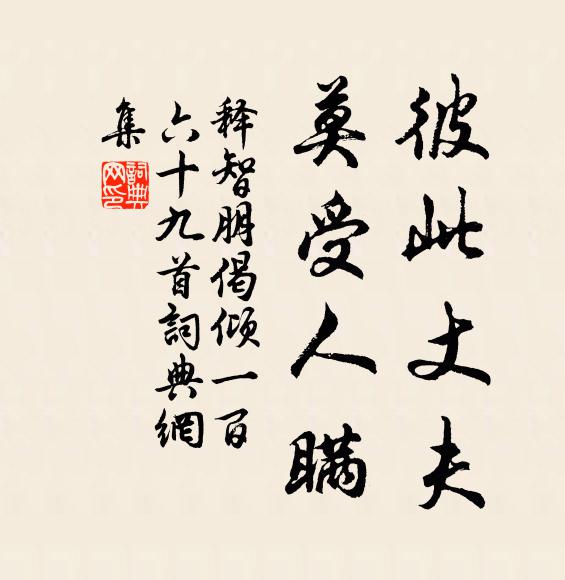 彼此丈夫
莫受人瞞
释智朋偈倾一百
六十九首詞典網
集
詞典
网印